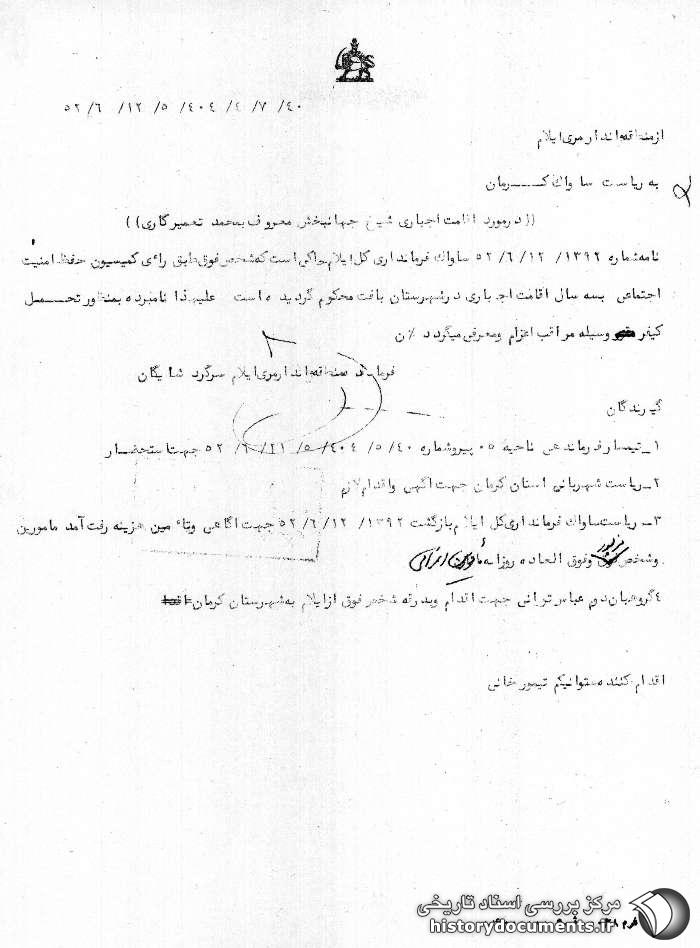 ۵۲/۶ /۱۲ /۵ /۴۰۴ /۴ /۷ /۴۰
از منطقه ژاندارمری ایلام
به ریاست ساواک کــــرمان
((در مورد اقامت اجباری شیخ جهانبخش معروف به محمد تعمیرکاری))
نامه شماره ۱۳۹۲/ ۵۲/۶/۱۲ ساواک فرمانداری کل ایلام حاکی است که شخص فوق طبق رای کمیسیون حفظ امنیت
اجتماعی بسه سال اقامت اجباری در شهرستان بافت محکوم گردیده است علیهذا نامبرده بمنظور تحــمل
کیفر وسیله مراقب اعزام ومعرفی میگردد /ن
فرمانده منطقه ژاندارمری ایلام سرگرد شایگان
گیرندگان
۱_تیمسار فرماندهی ناحیه ۰۵ پیرو شماره ۴۰ /۵ /۴۰۴ /۵ /۲۱ /۶ /۵۲ جهت استحضــار
۲_ریاست شهربانی استان کرمان جهت آگهی واقدام لازم
۳_ ریاست ساواک فرمانداری کل ایلام بازگشت ۱۳۹۲/ ۵۲/۶/۱۲ جهت آگاهی وتامین هزینه رفت آمد مامورین
وشخص مزبور وفوق العاده روزانه مامورین
۴گروهبان دوم عباس ترابی جهت اقدام وبدرقه شخص فوق از ایلام به شهرستان کرمان
اقدام کننده ستوانیکم تیمورخانی
فرم ۳۸
مرکز بررسی اسناد تاریخی
historydocuments.ir